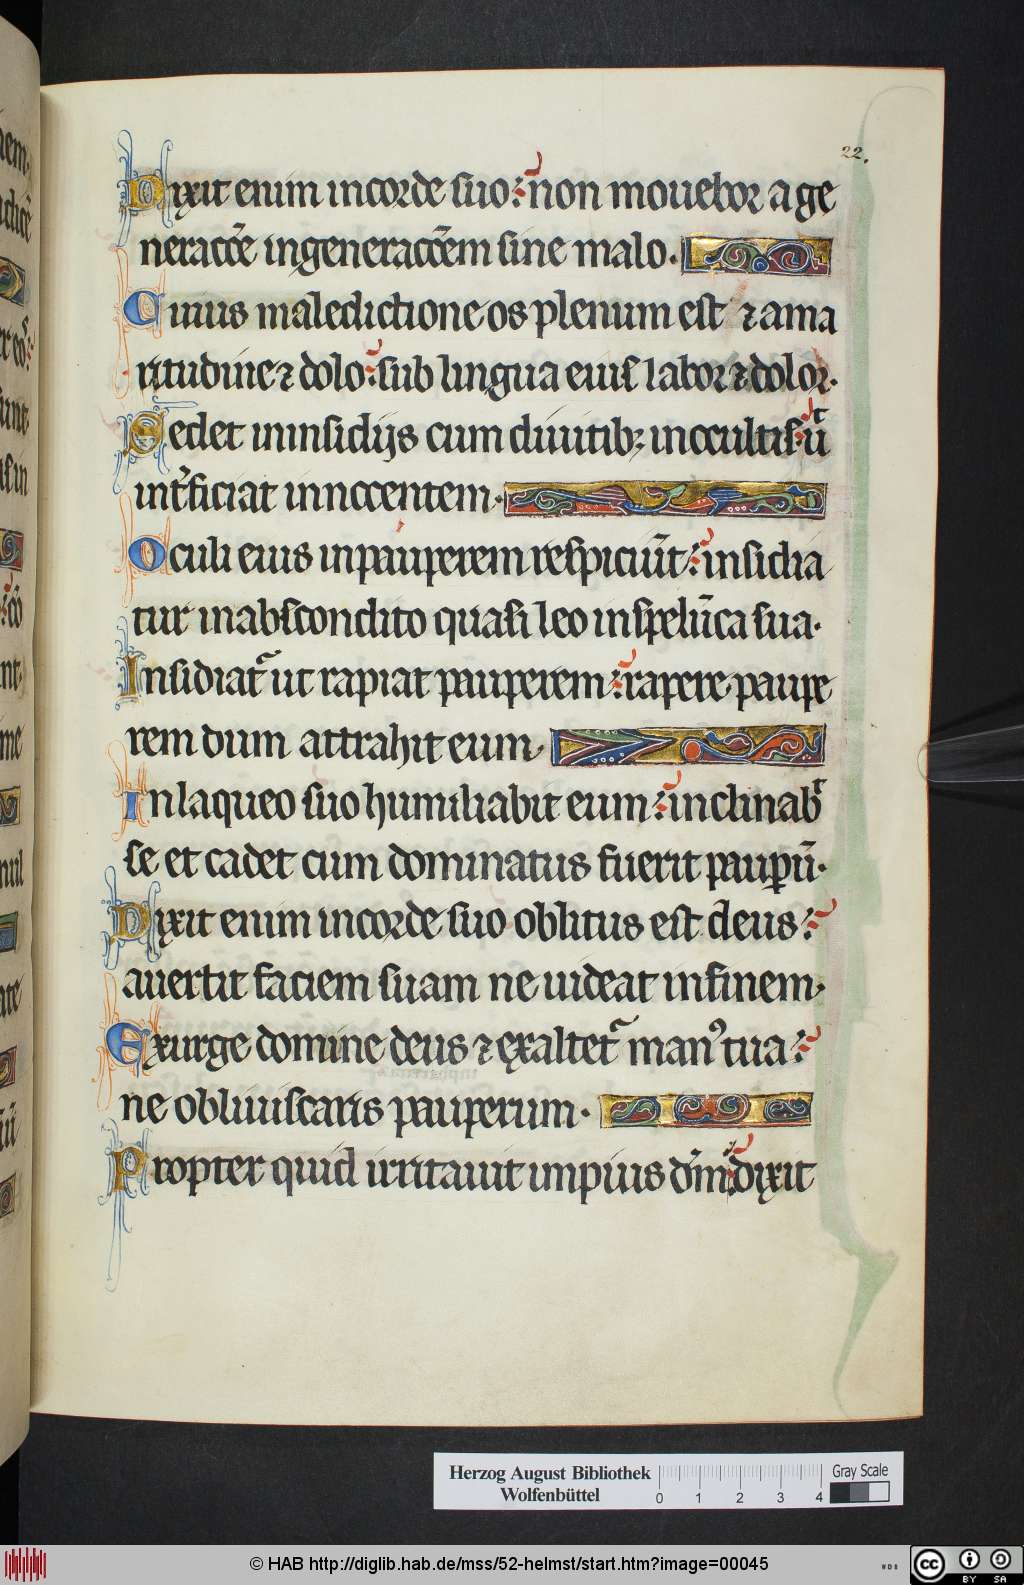 22.
Dixit enim in corde suo: non mouebor a ge
neracōe in generacōem sine malo.
Cuius maledictione os plenum est ⁊ ama
ritudine ⁊ dolo: sub lingua eius labor ⁊ dolor.
Sedet in insidijs cum diuitibꝫ in occultis: ut̄
int̄ficiat innocentem.
Oculi eius in pauperem respiciūt: insidia
tur in abscondito quasi leo in spelūca sua.
Insidiat᷑ ut rapiat pauperem: rapere paupe
rem dum attrahit eum.
In laqueo suo humiliabit eum: inclinab᷑
se et cadet cum dominatus fuerit paupū.
Dixit enim in corde suo oblitus est deus:
auertit faciem suam ne uideat in finem.
Exurge domine deus ⁊ exaltet᷑ manꝰ tua:
ne obliuiscaris pauperum.
Propter quid irritauit impius dm̄: dixit
Herzog August Bibliothek
Wolfenbüttel
0 1 2 3 4
Gray Scale
© HAB http://diglib.hab.de/mss/52-helmst/start.htm?image=00045
cc BY SA